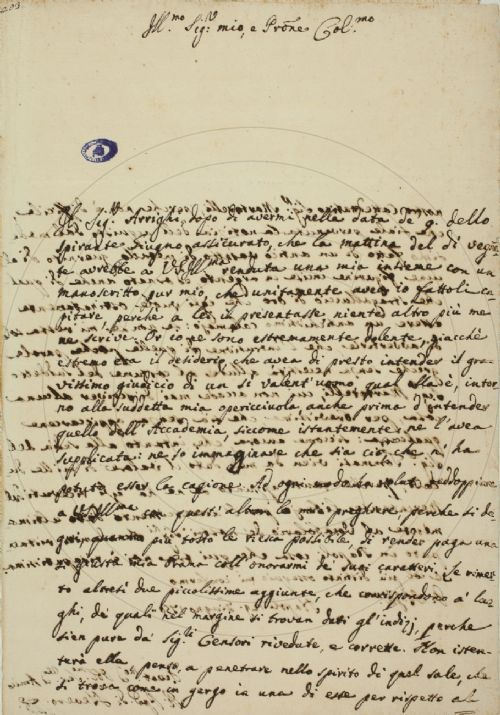 203
Ill.mo Sig.r mio, e Prōne Col.mo
Il Sig.r Arrighi dopo di avermi nella data de 9. dello
spirante Giugno assicurato, che la mattina del dì
te avrebbe a VS Ill.ma renduta una mia insieme con un
manoscritto pur mio, che unitamente avea io fattoli ca-
pitare perche a lei si presentasse niente altro più me
ne scrive. Or io ne sono estremamente dolente, giacchè
estremo era il desiderio, che avea di presto intender il gra-
vissimo giudicio di un sì valent'uomo, qual Ella è, intor-
no alla suddetta mia opericciuola, anche prima d'intender
quello dell'Accademia, siccome istantemente ne l'avea
supplicata: ne so immaginare che sia ciò, che n'ha
potuto esser la cagione. Ad ogni modo ho voluto raddoppiare
a VS Ill.ma con questi le mie preghiere perche si de-
gni quanto più tosto le riesca possibile di render paga
questa mia brama coll'onorarmi de' suoi caratteri. Le rimet-
to altresì due piccolissime aggiunte, che corrispondono a' luo-
ghi, de' quali nel margine si trovan' dati gl'indizj, perche
sien pure da' Sig.ri Censori rivedute, e corrette. Non isten-
terà ella penso, a penetrare nello spirito di quel sale, che
si trova come in gergo in una di este per rispetto al